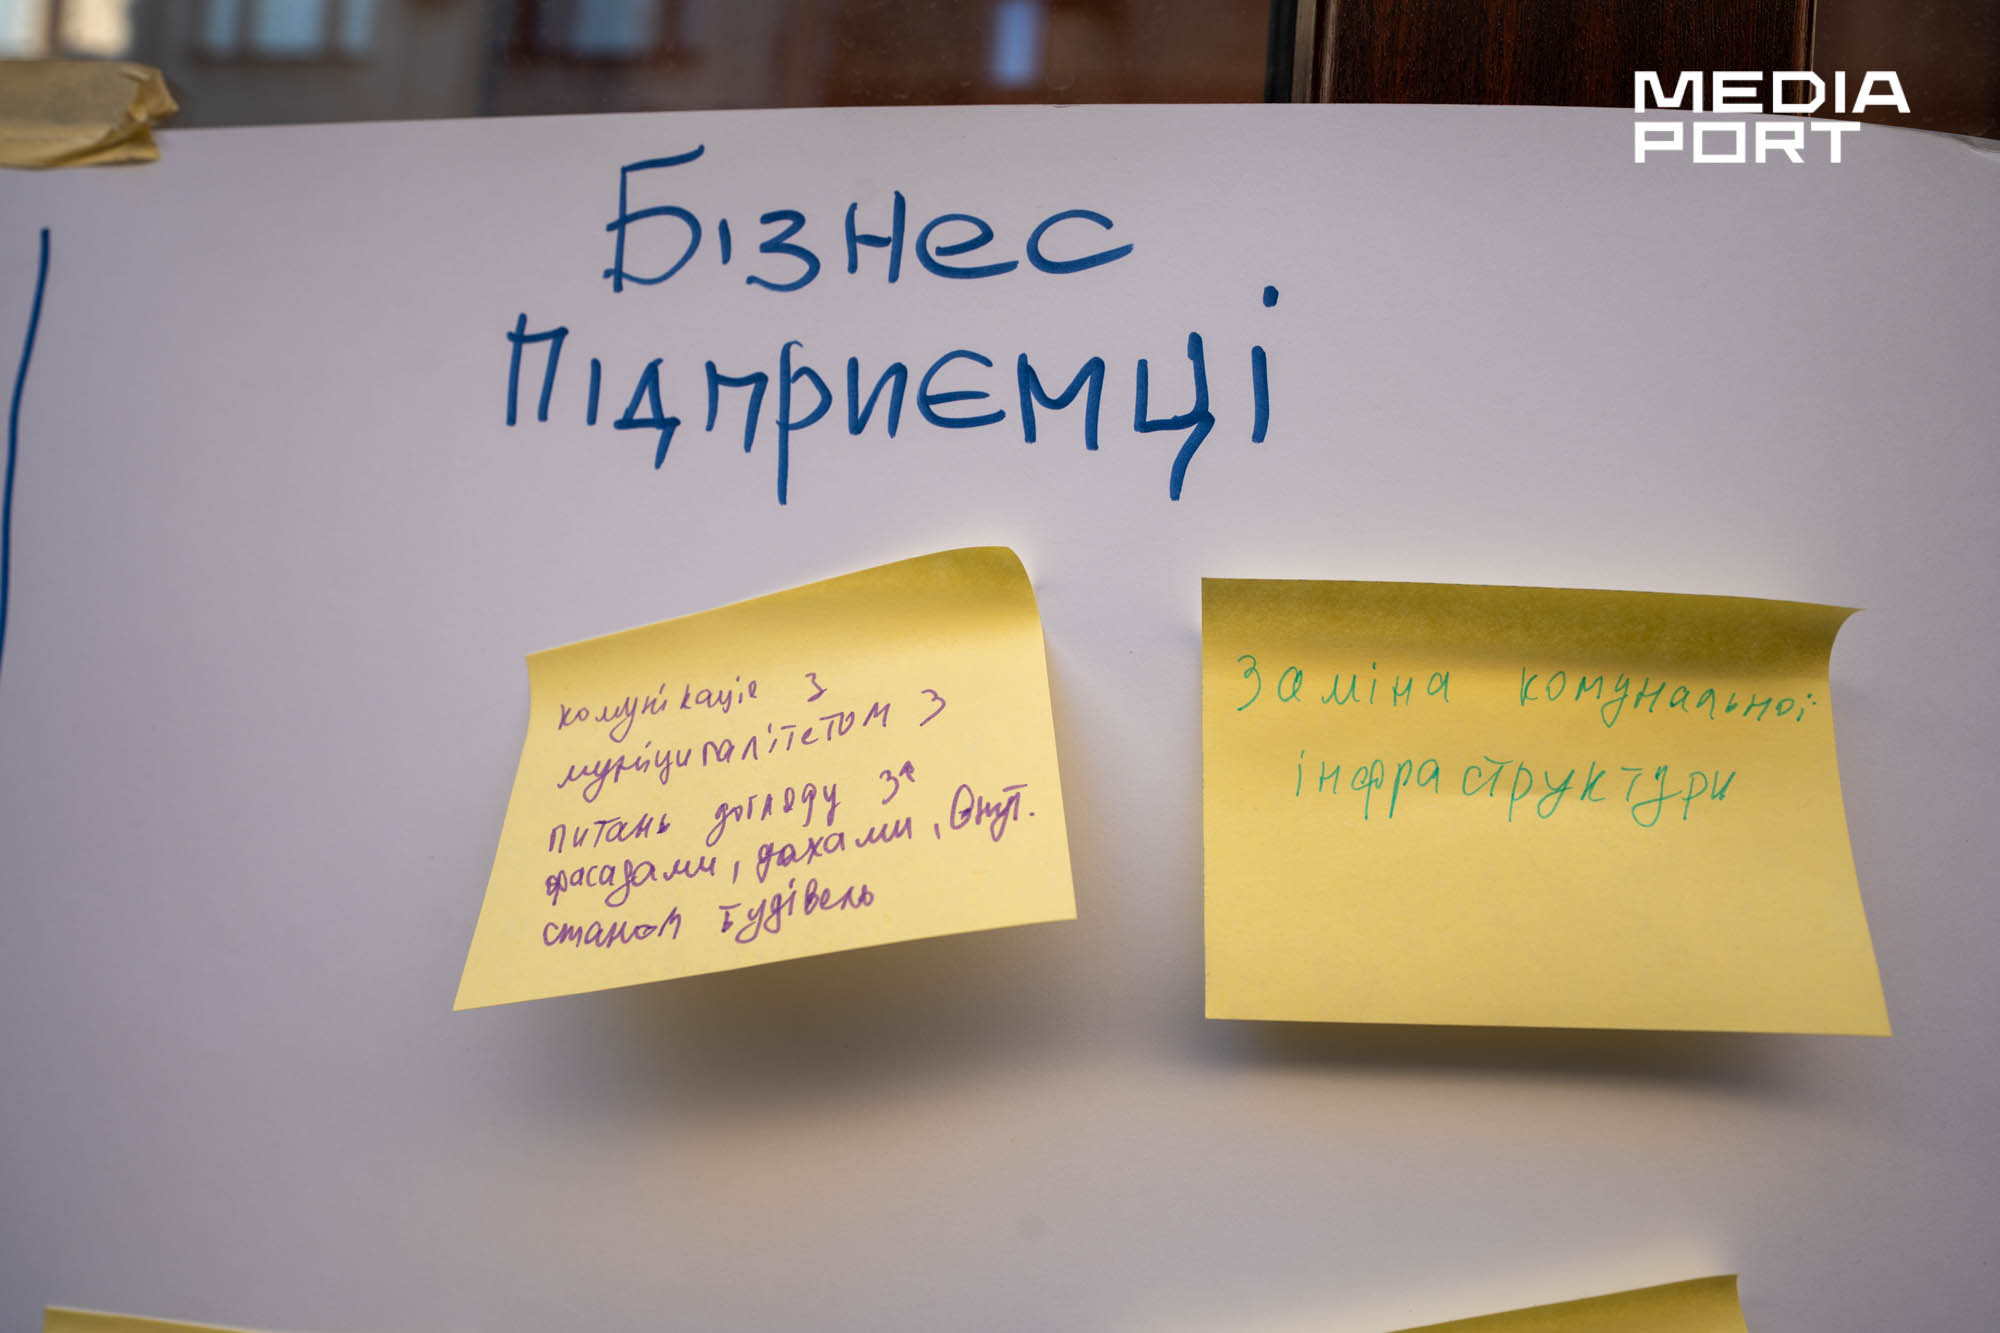 MEDIA
PORT
Бізнес
Підприємці
комунікаціє з
муніципалітетом з
питань догляду за
фасадами, дахами, внут.
станом будівель
Заміна комунальної
інфраструктури